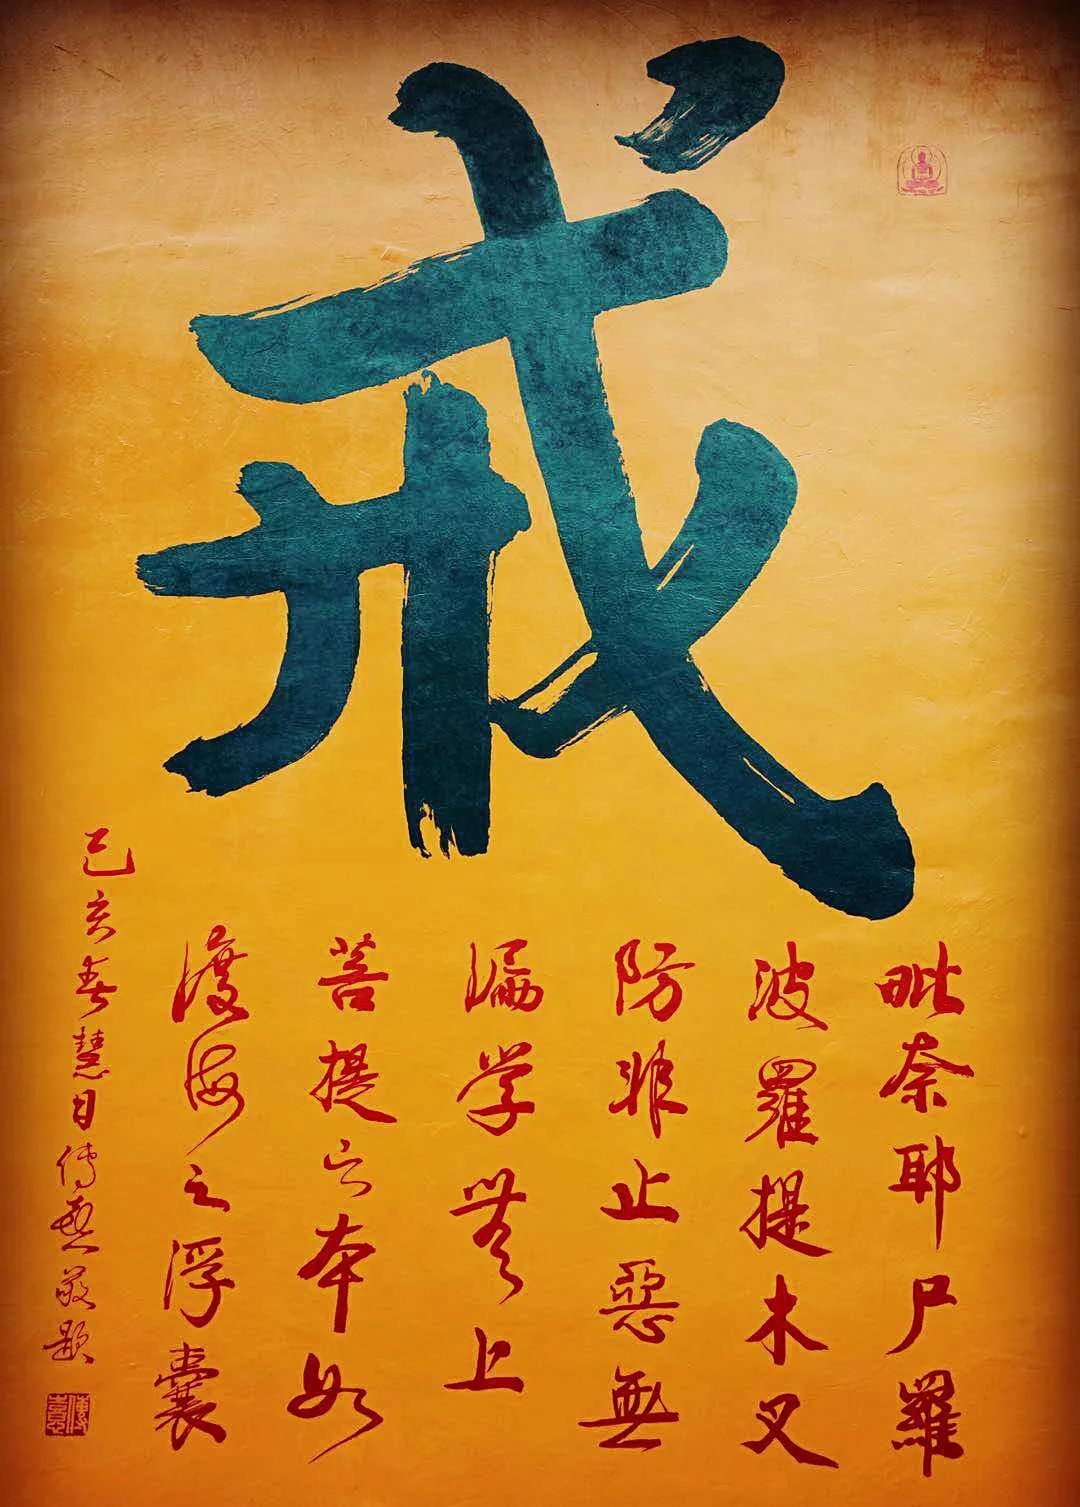 戒
毗奈耶尸羅
波羅提木叉
防非止惡無
漏学無上
菩提之本如
渡海之浮囊
己亥春慧日傳憙敬題